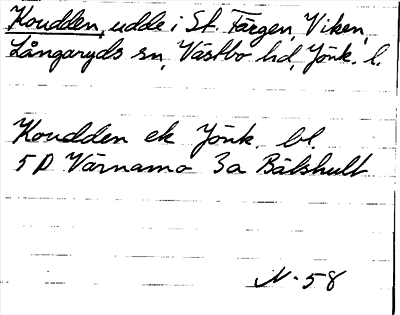 Koudden, udde i St. Färgen, Viken,
Långaryds sn, Västbo hd, Jönk. l.
Koudden ek Jönk. bl.
5 D Värnamo 3a Bälshult
N-58